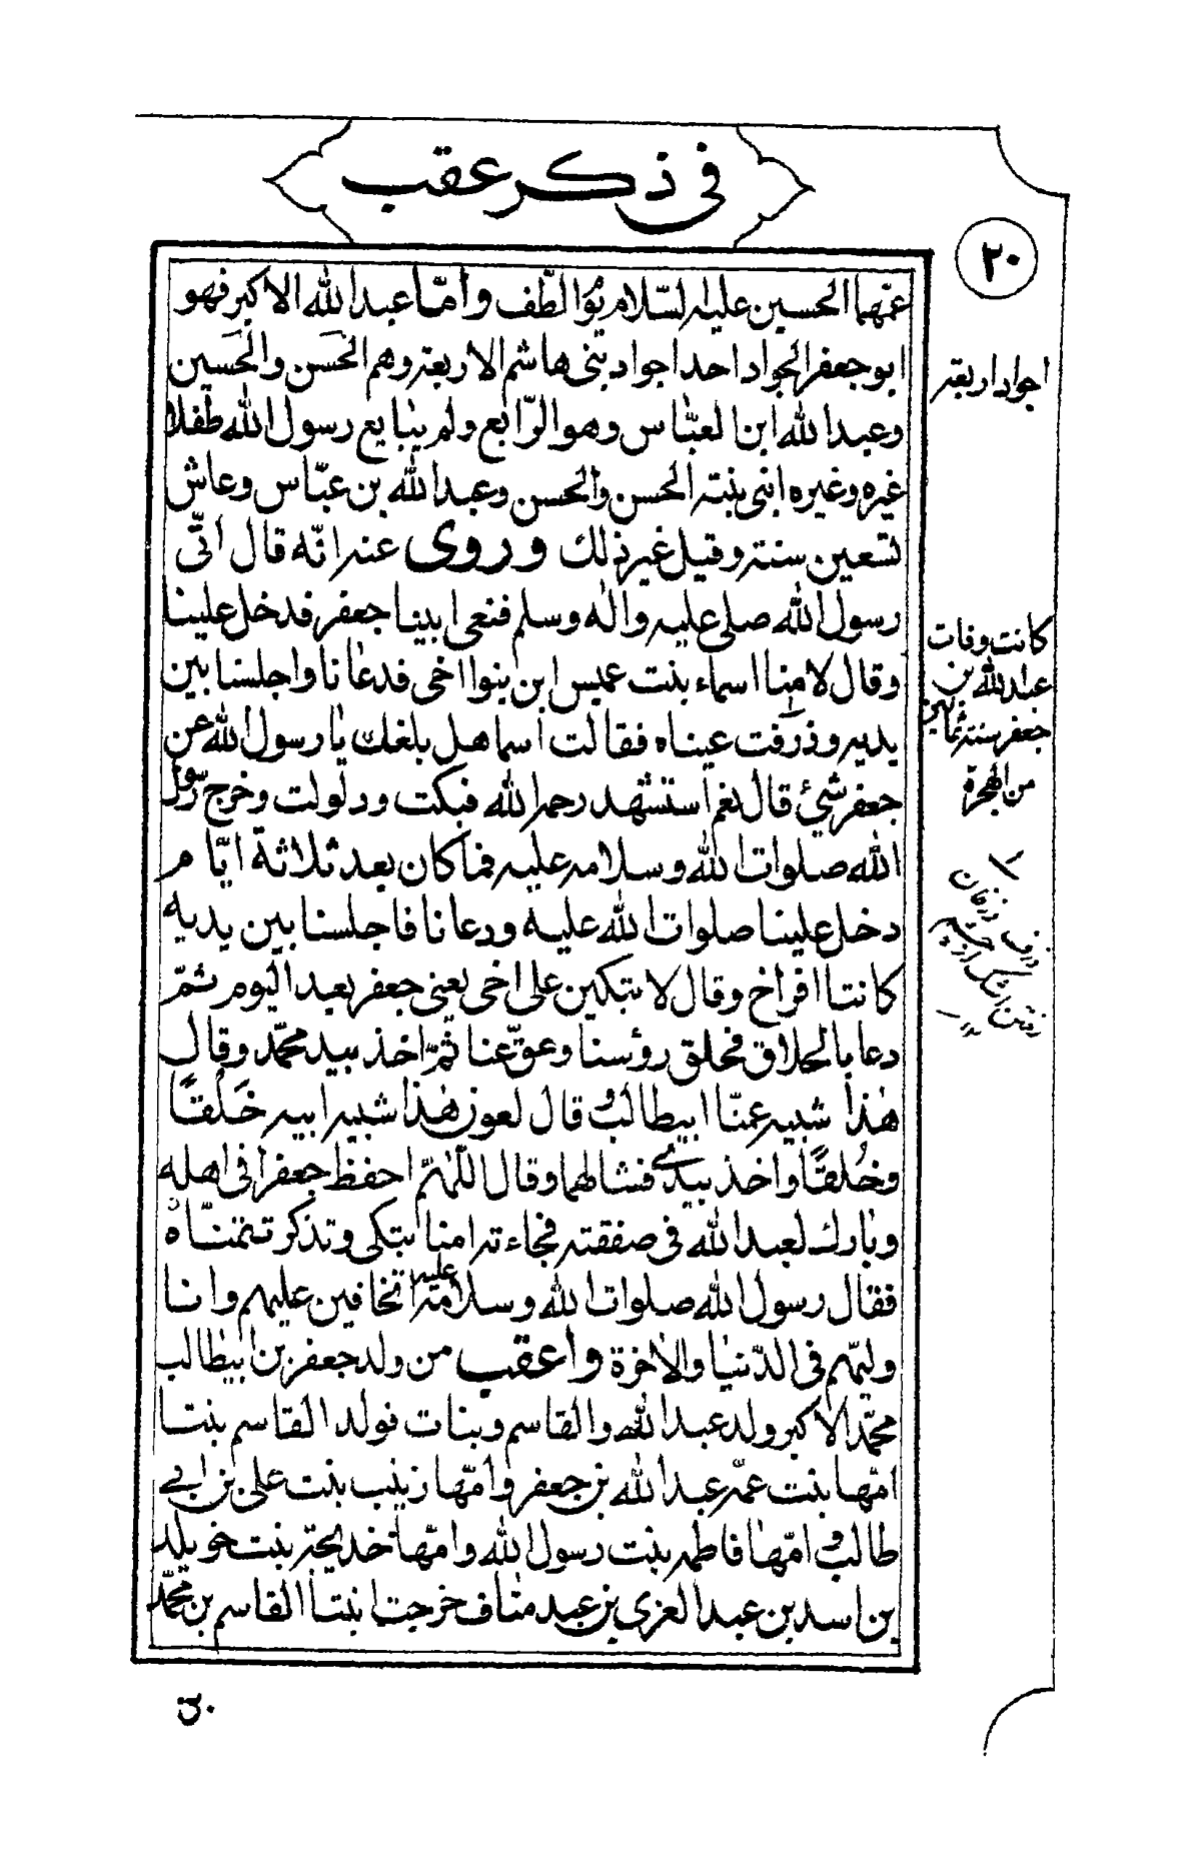 في ذكر عقب
٢٠
عنهما الحسين عليه السّلام يوم الطّف وأمّا عبد الله الاكبر فهو
ابو جعفر الجواد احد اجواد بني هاشم الاربعة وهم الحَسَن والحَسَين
وعبد الله ابن العبّاس وهو الرّابع ولم يبايع رسول الله طفلا
غيره وغيره ابني بنته الحسن والحسن وعبد الله بن عبّاس وعاش
تسعين سنة وقيل غير ذلك وروى عنه انّه قال اتّى
رسول الله صلى عليه واله وسلم فنعى ابينا جعفر فدخل علينا
وقال لامنا اسماء بنت عميس ابن بنوا اخى فدعانا واجلسنا بين
يديه وذرفت عيناه فقالت اسما هل بلغك يا رسول الله عن
جعفر شئ قال نعم استشهد رحمه الله فبكت وولولت وخرج رسول
الله صلوات الله وسلامه عليه فما كان بعد ثلاثة ايّام
دخل علينا صلوات الله عليه ودعانا فاجلسنا بين يديه
كانتا افراخ وقال لا تبكين على اخى يعنى جعفر بعد اليوم ثمّ
دعا بالحلاق فحلق رؤسنا وعقّ عنا ثمّ اخذ بيد محمّد وقال
هذا شبيه عمّنا ابيطالب و قال لعون هذا شبيه ابيه خَلقًا
وخُلقًا واخذ بيدي فشالها وقال اللّهمّ احفظ جعفرا فى اهله
وبارك لعبد الله فى صفقته فجاءته امنا تبكى وتذكر تيتمناه
فقال رسول الله صلوات الله وسلامه عليه اتخافين عليهم وانا
وليّهم فى الدّنيا والاخرة واعقب من ولد جعفر بن ابيطالب
محمّد الاكبر ولد عبد الله والقاسم وبنات فولد القاسم بنت
امّها بنت عمّه عبد الله بن جعفر وامّها زينب بنت على بن ابى
طالب و امّها فاطمه بنت رسول الله وامّها خديجة بنت خويلد
بن اسد بن عبد العزى بن عبد مناف خرجت ابنتا القاسم بن محمّد
اجواد اربعة
كانت وفات
عبد الله بن
جعفر سنة ثمانين
من الهجرة